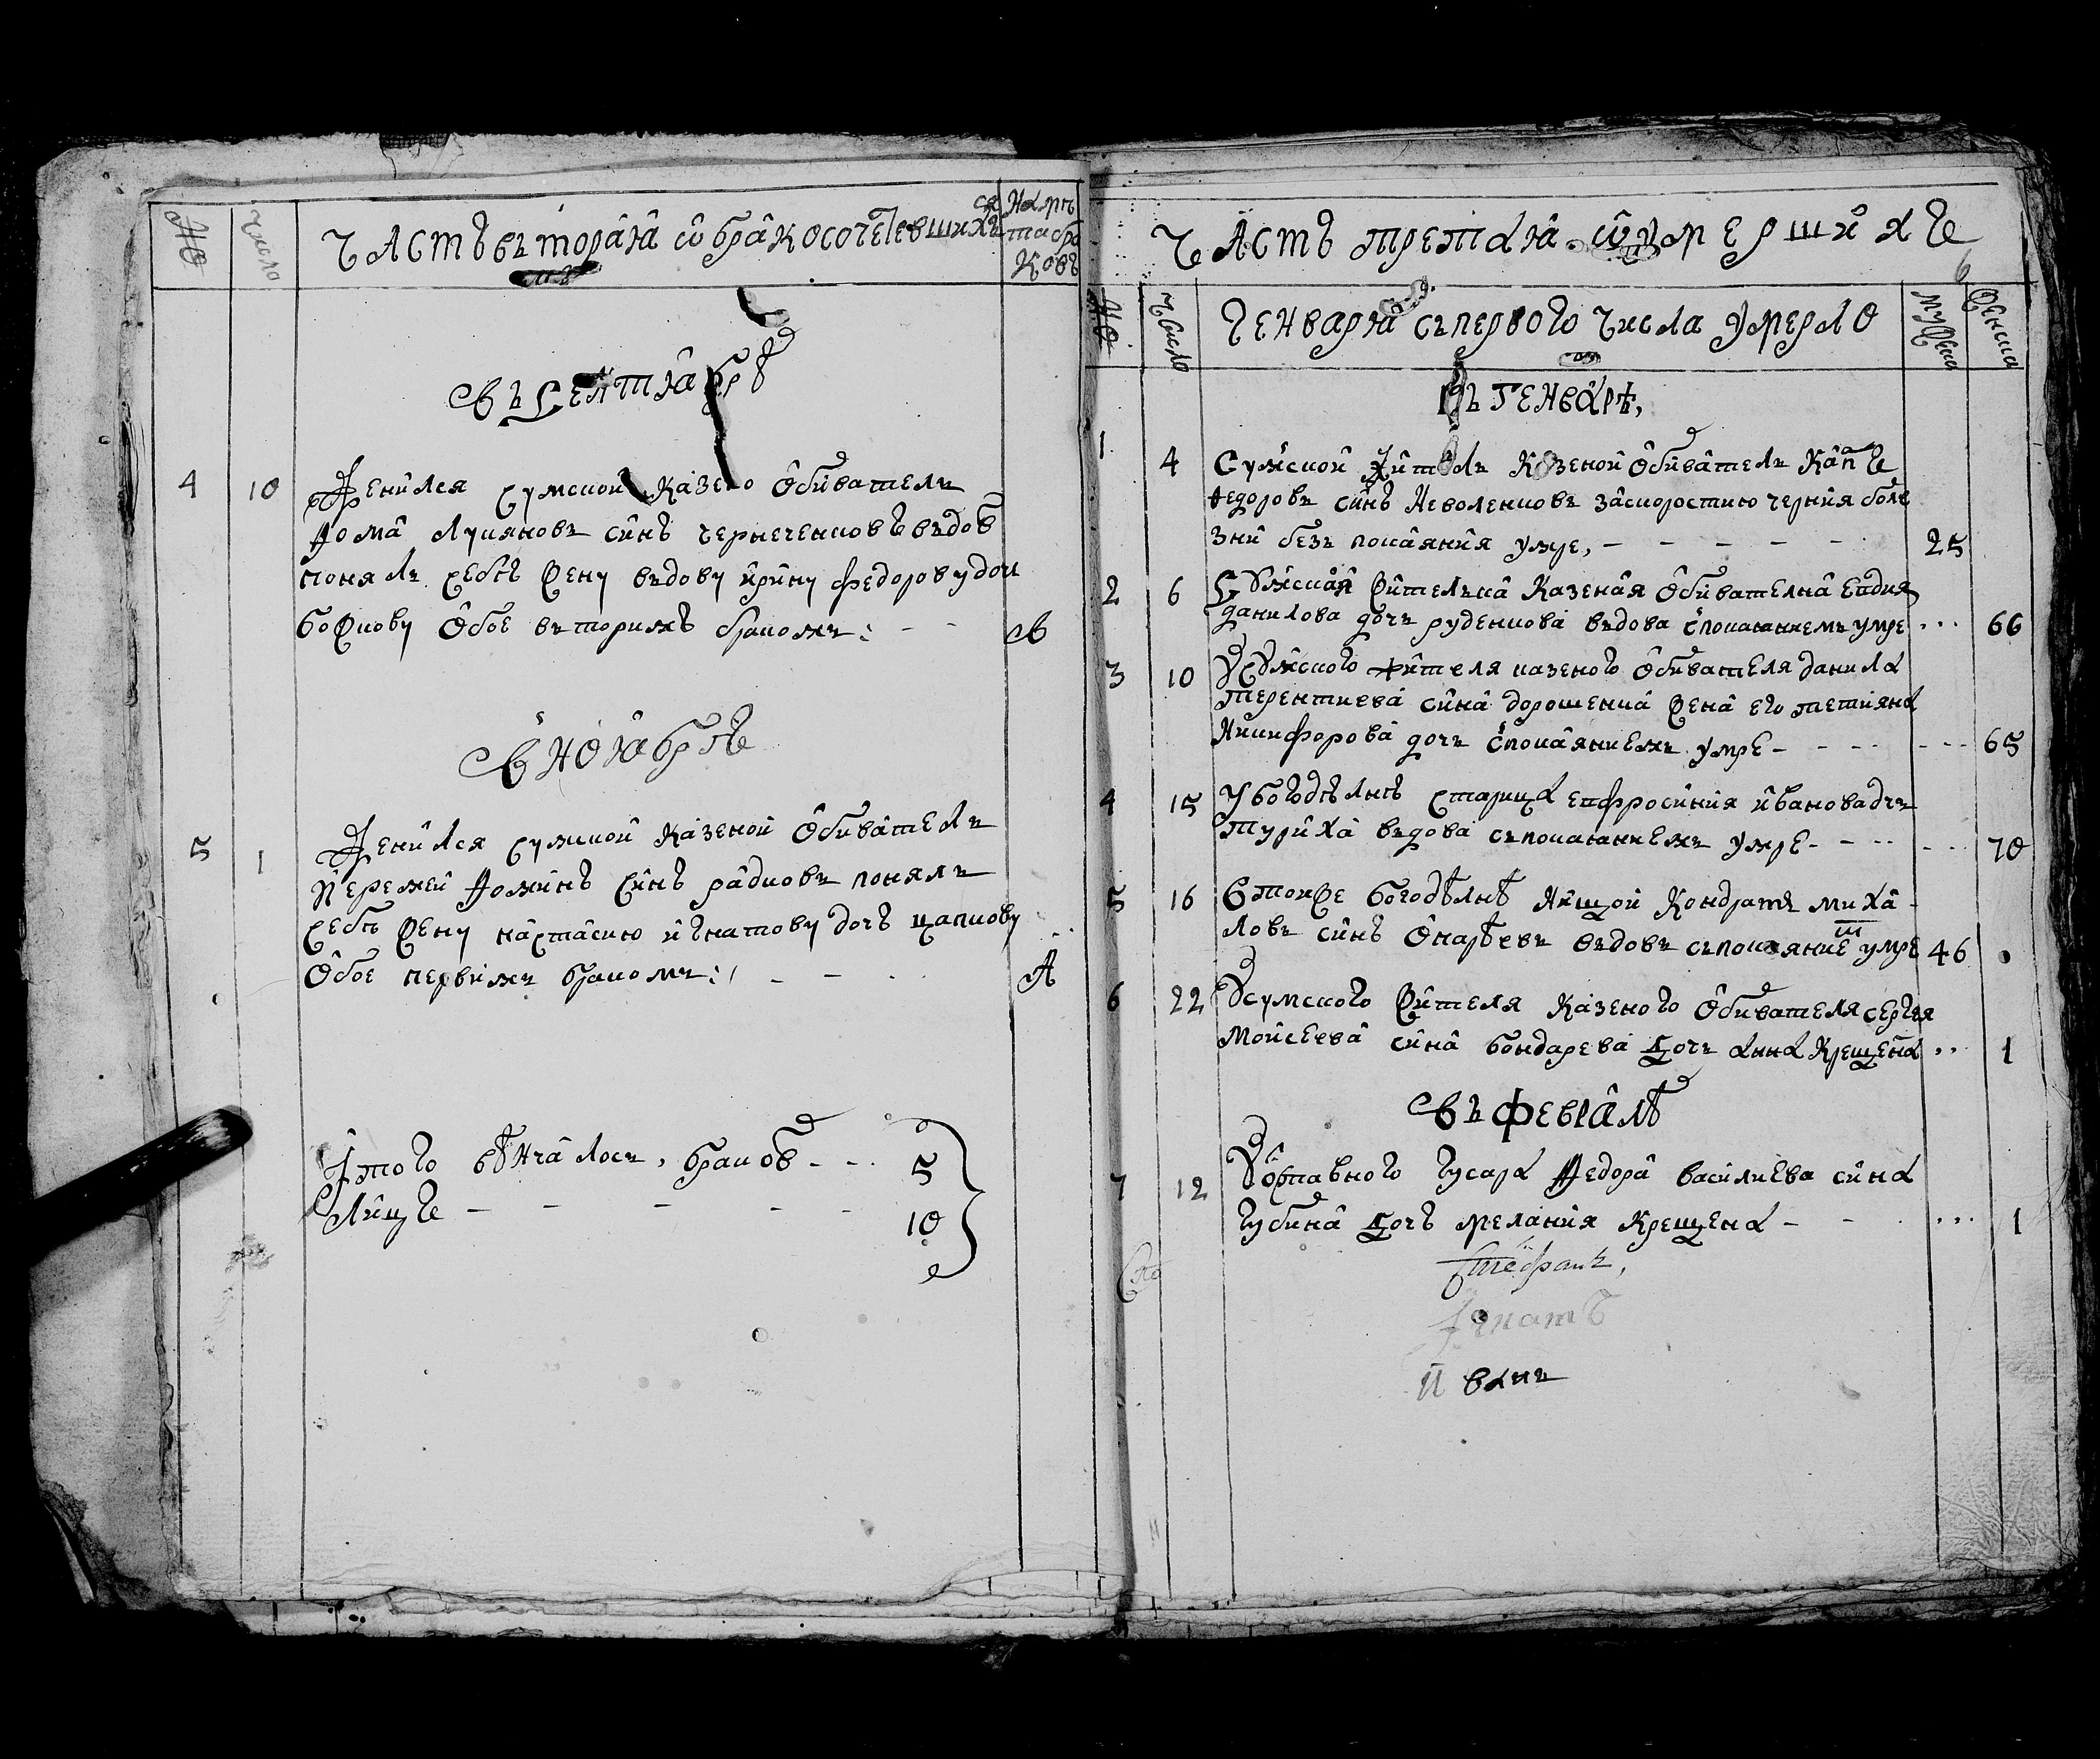 №
Число
Часть вторая о бракосочетавшихся
Которы та бра ковъ
Въ Сентябрѣ
4 10 Женился сумской казено обиватель
Фома Лукяновъ синъ чернеченковъ вдов
понялъ себѣ жену вдову ирину федорову доч
божкову обое вторимъ бракомъ: - - В
В ноябрѣ
5 1 Женился сумской казеной обиватель
Иеремей Фоминъ синъ радковъ понялъ
себѣ жену настасию игнатову дочъ цапкову
обое первимъ бракомъ: - - А
Итого вѣнчалось браков - - 5
Лицъ - - - - - 10
Часть третїая о умершихъ
6
№
Число
Генваря съ первого числа умерло
мужеск
женска
Въ генварѣ,
1 4 Сумской житель казеной обиватель
Федоровъ синъ Неволенковъ заскоростию черния боле
зни безъ покаяния умре, - - - - - 25
2 6 Сумская жителка казеная обивателка
данилова дочъ руденкова вдова спокаяниемъ умре ... 66
3 10 У сумского жителя казеного обивателя данила
терентиева сина дорошенка жена его тетияна
Никифорова дочъ спокаяниемъ умре - - - - 65
4 15 У богодѣлнѣ старица ефросиния иванова дчъ
туриха вдова съпокаяниемъ умре - - - - 70
5 16 В тойже богодѣлнѣ нищой Кондратъ миха
ловъ синъ вдовъ съпокаяние умре 46
6 22 У сумского жителя казеного обивателя сергея
Мойсеева сина бондарева дочъ анна крещена .. 1
Въ февралѣ
7 12 У ставного гусара Федора василиева сина
губина дочъ мелания крещена - - ... 1
Стефанъ,
Игнатъ
Иванъ